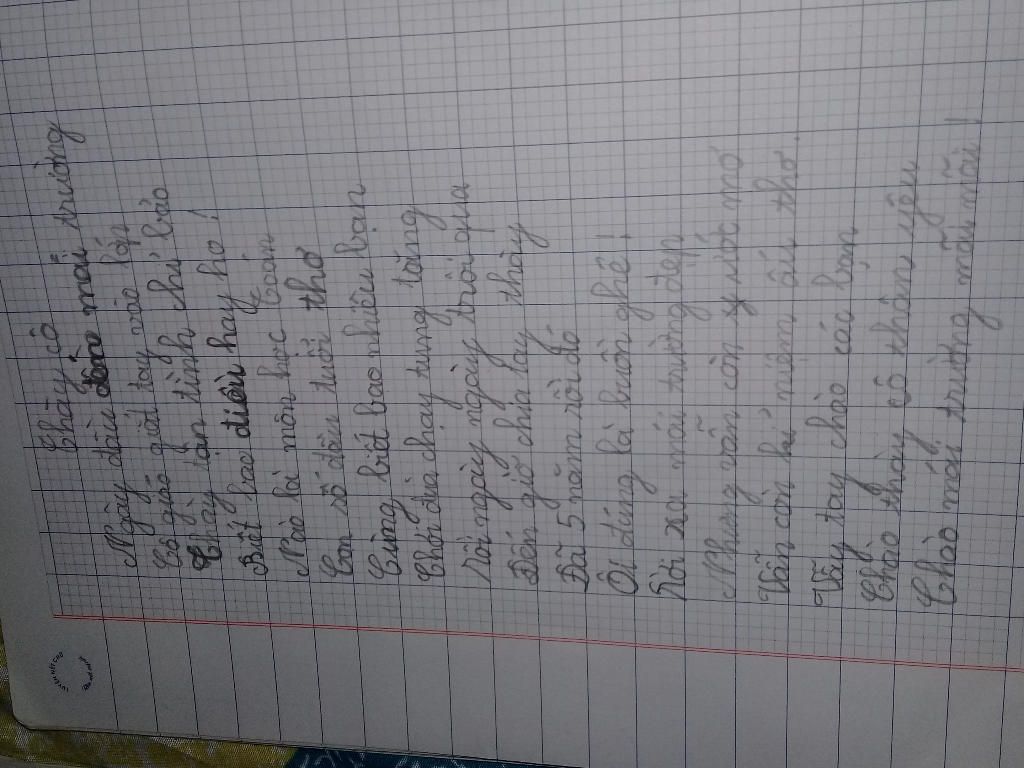 Thầy cô
Ngày đầu đến mái trường
Cô giáo dắt tay vào lớp
Thầy tận tình chỉ bảo
Biết bao điều hay ho!
Nào là môn học toán
Con số đến tuổi thơ
Cùng biết bao nhiêu bạn
Chơi đùa chạy tung tăng
Rồi ngày ngày trôi qua
Đến giờ chia tay thầy
Đã 5 năm rồi đó
Ôi đúng là buồn ghê!
Rời xa mái trường đẹp
Nhưng vẫn còn ước mơ
Vẫn còn kỉ niệm ấu thơ.
Vẫy tay chào các bạn
Chào thầy cô thân yêu
Chào mái trường mãi mãi!